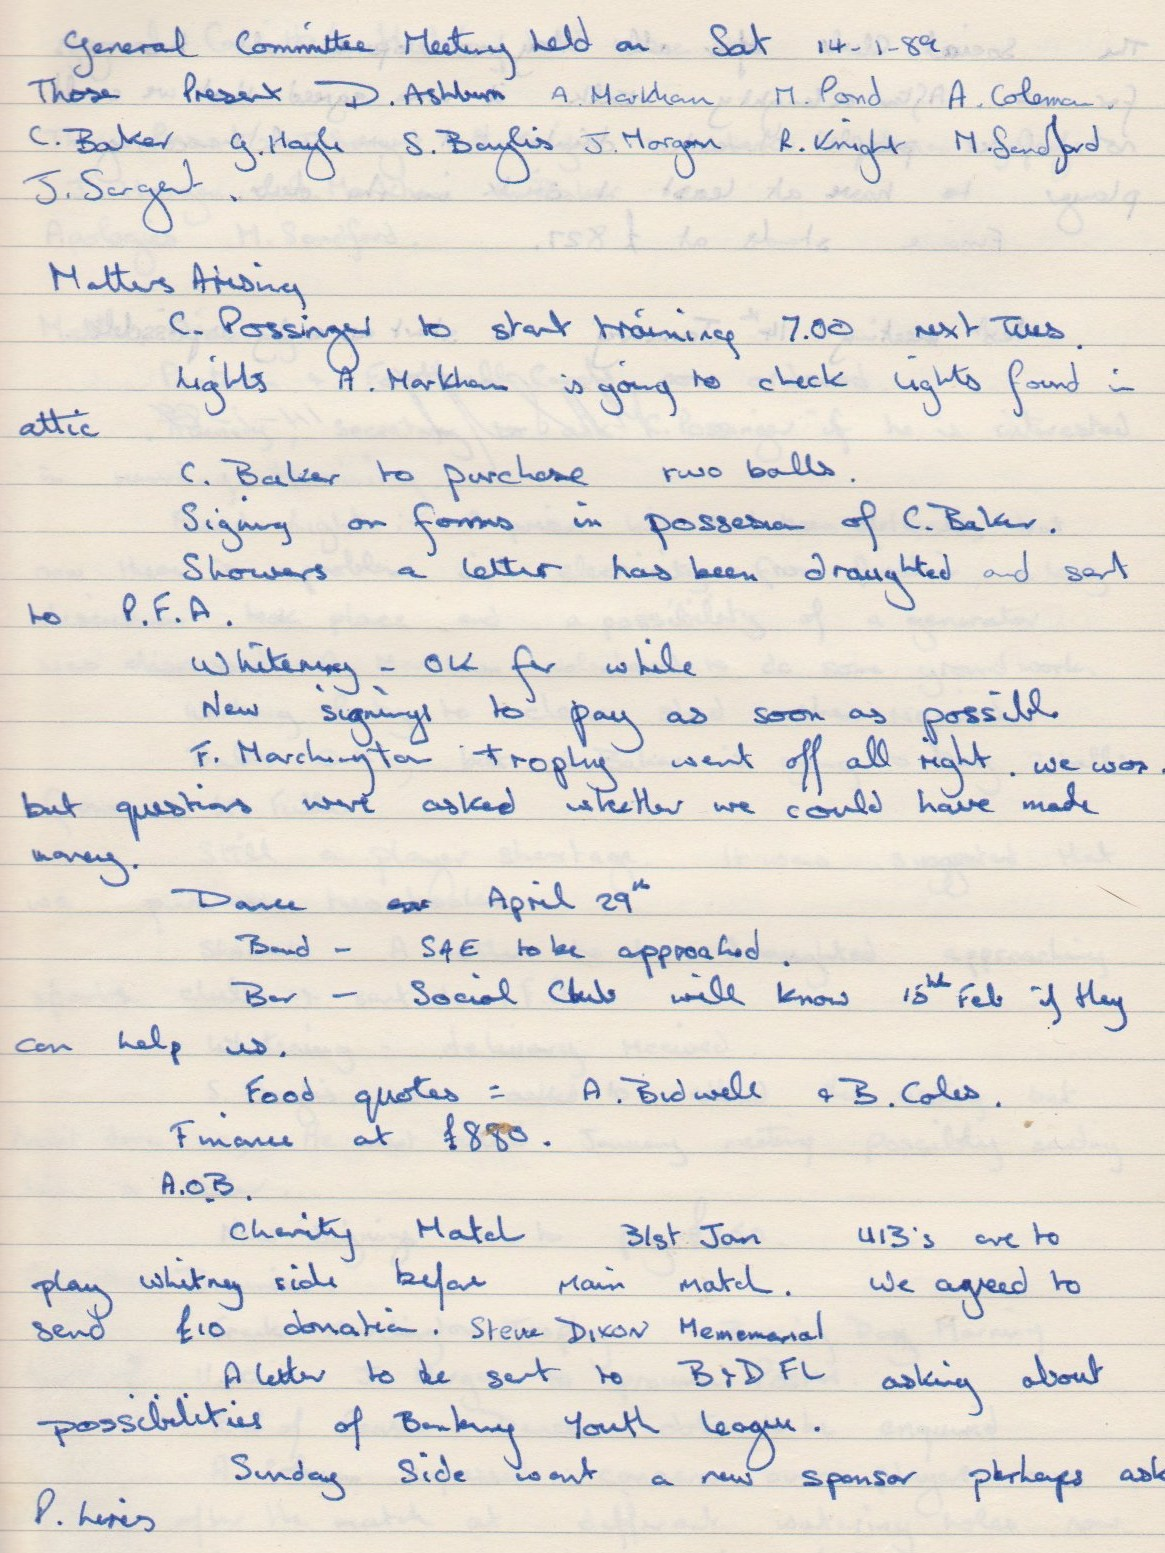 General Committee Meeting held on Sat 14-1-89
Those Present D. Ashburn A. Markham M. Pond A. Coleman.
C. Baker G. Hayle S. Baylis J. Morgan R. Knight M. Sandford
J. Sargent.
Matters Arising
C. Possinger to start training 7.00 next Tues.
Lights A. Markham is going to check lights found in
attic
C. Baker to purchase two balls.
Signing on forms in possesion of C. Baker.
Showers a letter has been draughted and sent
to P.F.A.
Whitening - OK for while
New signings to pay as soon as possible
F. Marchington trophy went off all right. we won.
but questions were asked whether we could have made
money.
Dance on April 29th
Band - SAE to be approached.
Bar - Social Club will know 15th Feb if they
can help us.
Food quotes = A. Bidwell & B. Coles.
Finance at £880.
A.O.B.
Charity Match 31st Jan U13's are to
play Whitney side before main match. We agreed to
send £10 donation. Steve DIXON Mememorial
A letter to be sent to B&DFL asking about
possibilities of Banbury Youth League.
Sunday Side want a new sponsor perhaps ask
P.